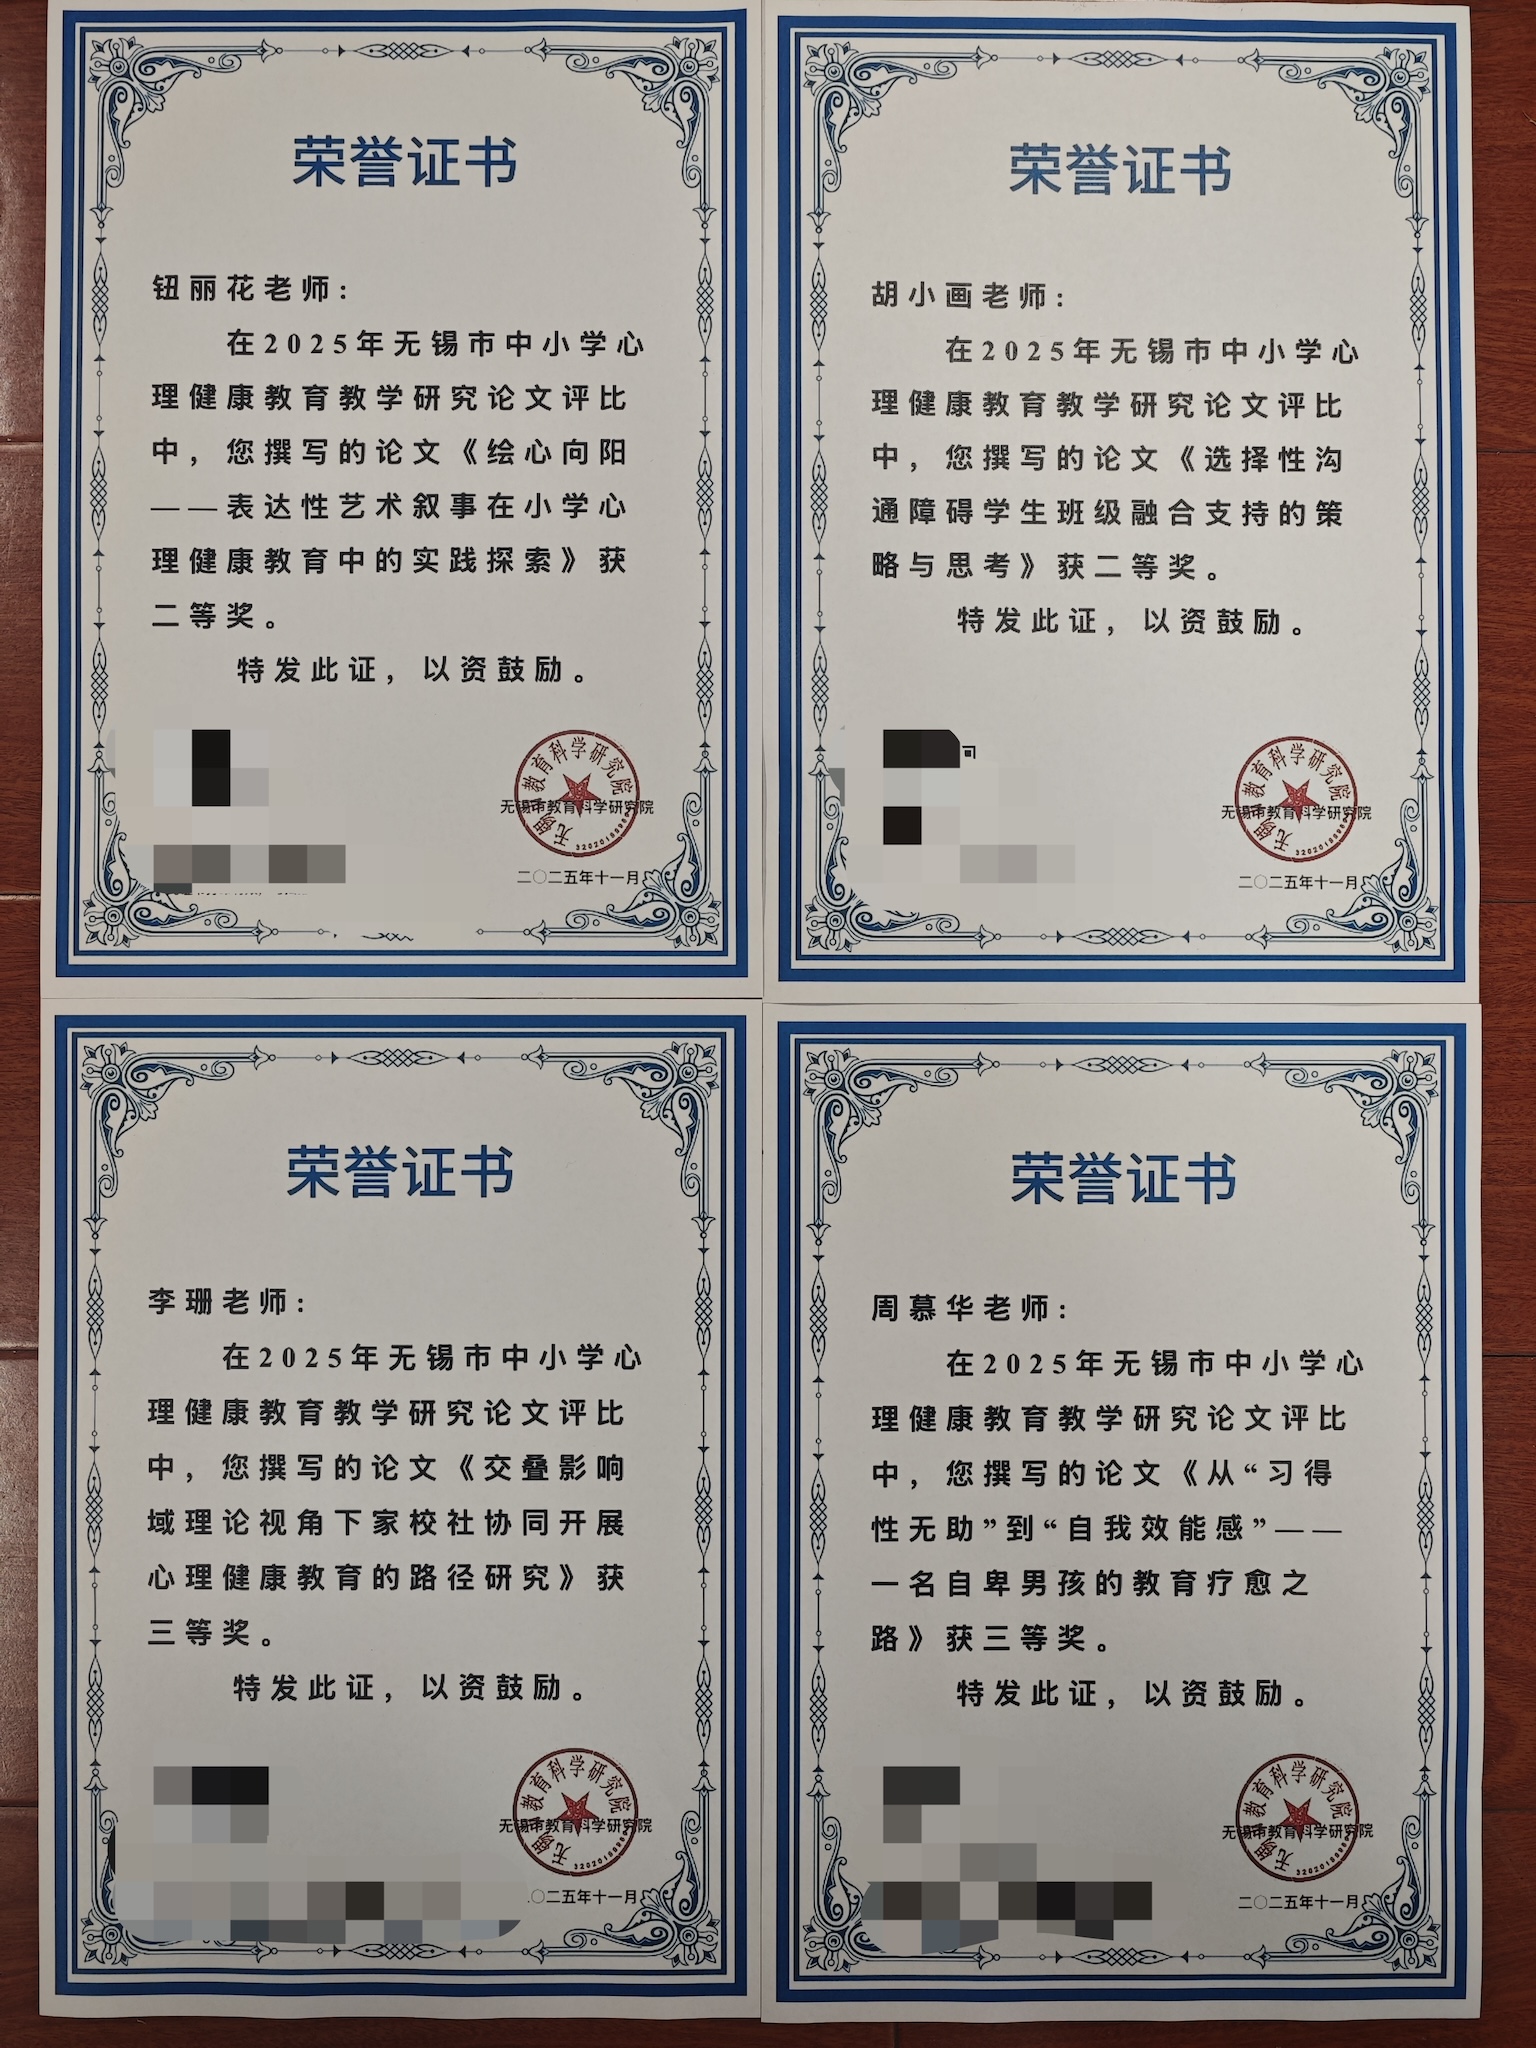 荣誉证书
钮丽花老师：
在2025年无锡市中小学心
理健康教育教学研究论文评比
中，您撰写的论文《绘心向阳
——表达性艺术叙事在小学心
理健康教育中的实践探索》获
二等奖。
特发此证，以资鼓励。
无锡市教育科学研究院
无锡市教育科学研究院
二〇二五年十一月
荣誉证书
胡小画老师：
在2025年无锡市中小学心
理健康教育教学研究论文评比
中，您撰写的论文《选择性沟
通障碍学生班级融合支持的策
略与思考》获二等奖。
特发此证，以资鼓励。
无锡市教育科学研究院
无锡市教育科学研究院
二〇二五年十一月
荣誉证书
李珊老师：
在2025年无锡市中小学心
理健康教育教学研究论文评比
中，您撰写的论文《交叠影响
域理论视角下家校社协同开展
心理健康教育的路径研究》获
三等奖。
特发此证，以资鼓励。
无锡市教育科学研究院
无锡市教育科学研究院
〇二五年十一月
荣誉证书
周慕华老师：
在2025年无锡市中小学心
理健康教育教学研究论文评比
中，您撰写的论文《从“习得
性无助”到“自我效能感”——
一名自卑男孩的教育疗愈之
路》获三等奖。
特发此证，以资鼓励。
无锡市教育科学研究院
无锡市教育科学研究院
二〇二五年十一月